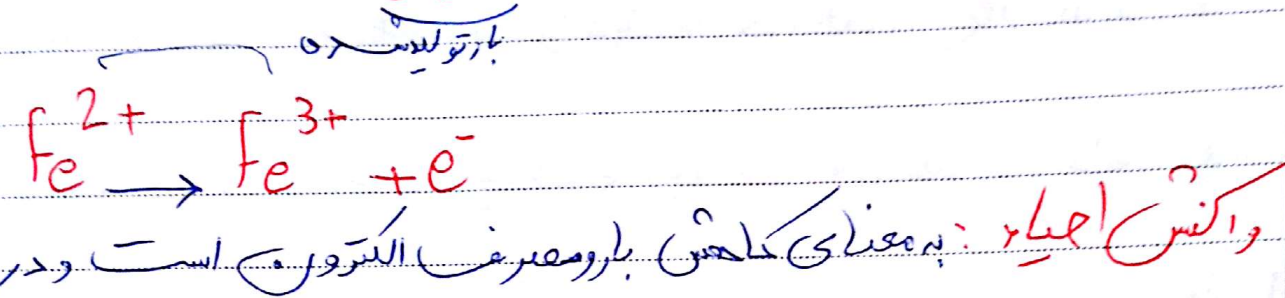 بار تولید شده
Fe²⁺ → Fe³⁺ + e⁻
واکنش احیاء : به معنای کاهش بار و مصرف الکترون است و در